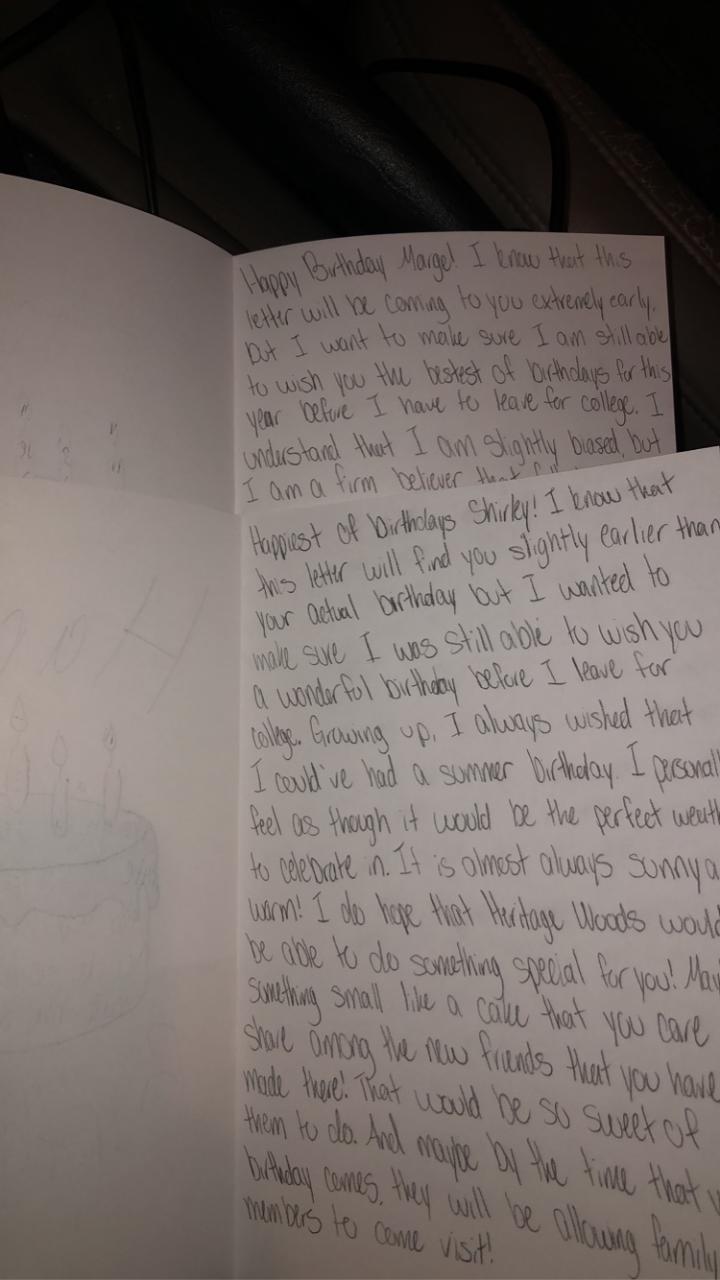 Happy Birthday Marge! I know that this
letter will be coming to you extremely early,
but I want to make sure I am still able
to wish you the bestest of birthdays for this
year before I have to leave for college. I
understand that I am slightly biased, but
I am a firm believer that
Happiest of birthdays Shirley! I know that
this letter will find you slightly earlier than
your actual birthday but I wanted to
make sure I was still able to wish you
a wonderful birthday before I leave for
college. Growing up, I always wished that
I could've had a summer birthday. I personall
feel as though it would be the perfect weath
to celebrate in. It is almost always sunny a
warm! I do hope that Heritage Woods woul
be able to do something special for you! May
something small like a cake that you care
share among the new friends that you have
made there! That would be so sweet of
them to do. And maybe by the time that
birthday comes, they will be allowing family
members to come visit!